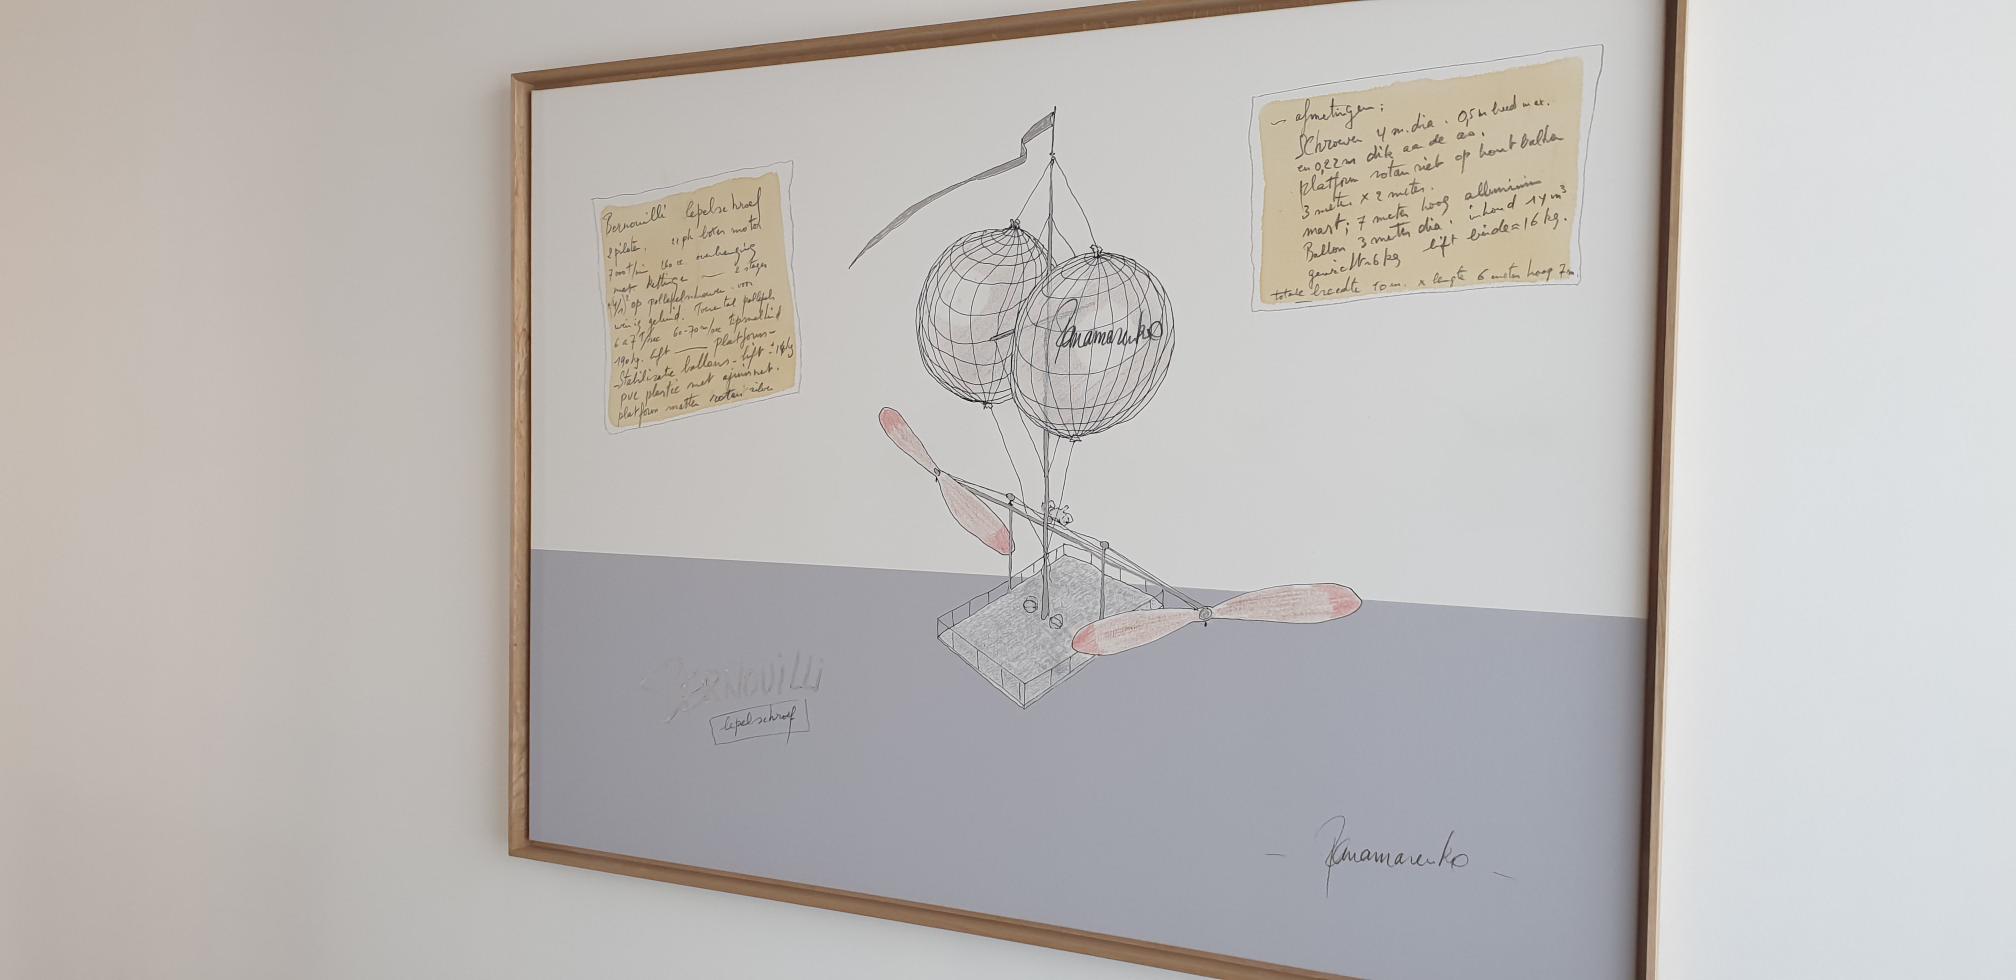 Bernouilli lepelschroef
2 piloten. 22 pk boten motor
260 cc overhanging
met kettinge — 2 stages
op pollepelschroeven. voor
weinig geluid. Toerental pollepels
6 a 7 T/sec 60-70 m/sec tipsnelheid
190 kg. lift — platform -
- Stabilisatie ballons - lift = 16 kg
pvc plastic met ajuinnet.
platform matten rotan
~ afmetingen:
Schroeven 4 m. dia. 0,5 m breed max.
en 0,22 m dik aan de as.
platform rotan riet op hout balken
3 meter x 2 meter.
mast; 7 meter hoog alluminium
Ballon 3 meter dia. inhoud 14 m³
gewicht 6 kg lift beide = 16 kg.
totale breedte 10 m. x lengte 6 meter hoog 7 m.
Panamarenko
BERNOUILLI
lepelschroef
- Panamarenko -